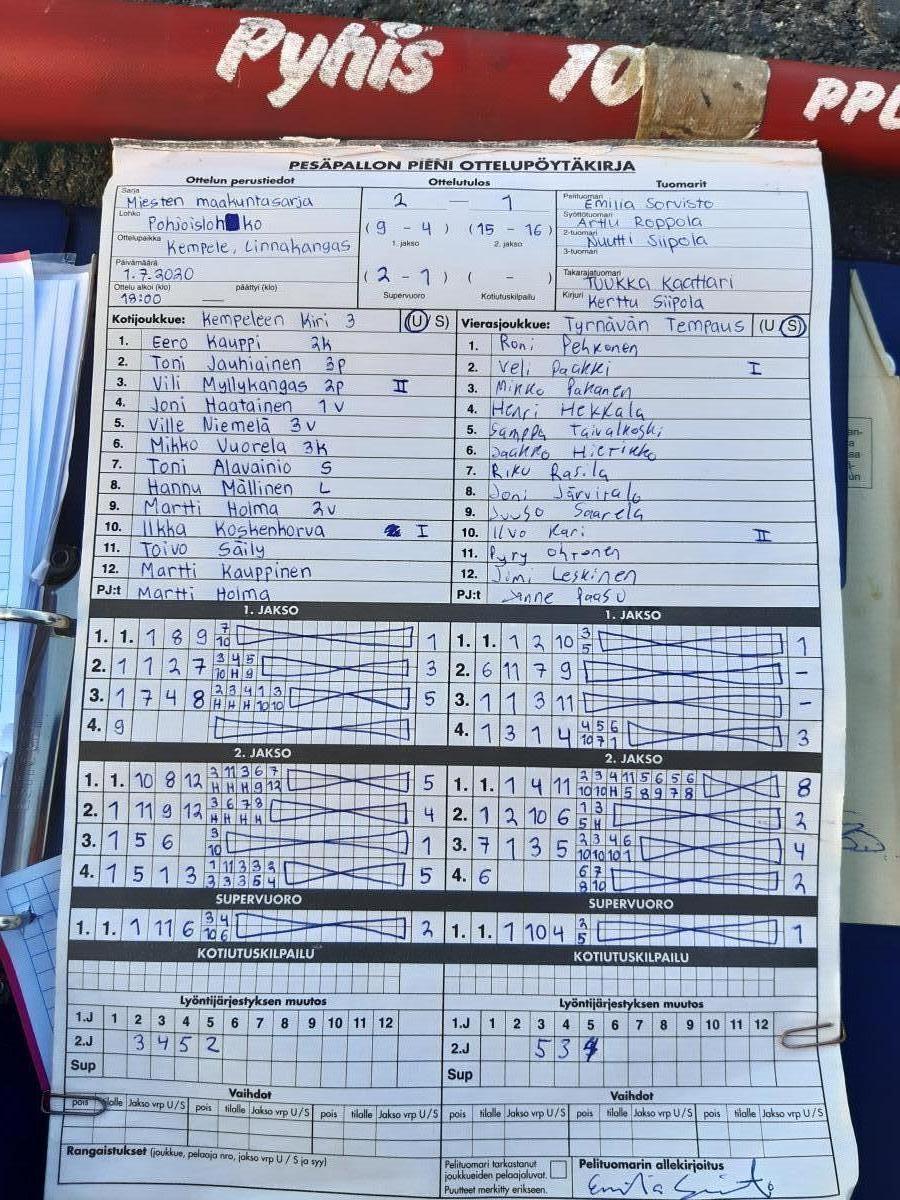 Pyhis 10 PPL
PESÄPALLON PIENI OTTELUPÖYTÄKIRJA
Ottelun perustiedot
Sarja
Miesten maakuntasarja
Lohko
Pohjoisloh ko
Ottelupaikka
Kempele, Linnakangas
Päivämäärä
1.7.2020
Ottelu alkoi (klo) päättyi (klo)
18:00 —
Ottelutulos
2 — 1
(9 - 4) (15 - 16)
1. jakso 2. jakso
(2 - 1) ( - )
Supervuoro Kotiutuskilpailu
Tuomarit
Pelituomari
Emilia Sorvisto
Syöttötuomari
Arttu Roppola
2-tuomari
Nuutti Siipola
3-tuomari
Takarajatuomari
Tuukka Kaattari
Kirjuri
Kerttu Siipola
Kotijoukkue: Kempeleen Kiri 3 (U/S)
1. Eero Kauppi 2k
2. Toni Jauhiainen 3p
3. Vili Myllykangas 2p II
4. Joni Haatainen 1v
5. Ville Niemelä 3v
6. Mikko Vuorela 3k
7. Toni Alavainio S
8. Hannu Mällinen L
9. Martti Holma 2v
10. Ilkka Koskenkorva I
11. Toivo Säily
12. Martti Kauppinen
PJ:t Martti Holma
Vierasjoukkue: Tyrnävän Tempaus (U/S)
1. Roni Pehkonen
2. Veli Paakki I
3. Mikko Pahanen
4. Henri Hekkala
5. Samppa Taivalkoski
6. Jaakko Hietikko
7. Riku Rasila
8. Joni Järvitalo
9. Juuso Saarela
10. Ilvo Kari II
11. Pyry Ohtonen
12. Jimi Leskinen
PJ:t Janne Paaso
1. JAKSO
1. 1. 1 8 9 7 1
10
2. 1 1 2 7 3 4 5 3
10 H 9
3. 1 7 4 8 2 3 4 1 3 5
H H H 10 10
4. 9
1. JAKSO
1. 1. 1 2 10 3 1
5
2. 6 11 7 9 -
3. 1 1 3 11 -
4. 1 3 1 4 4 5 6 3
10 7 1
2. JAKSO
1. 1. 10 8 12 2 11 3 6 7 5
H H H 9 12
2. 1 11 9 12 3 6 7 8 4
H H H H
3. 1 5 6 3 1
10
4. 1 5 1 3 1 11 3 3 3 5
3 3 3 5 4
2. JAKSO
1. 1. 1 4 11 2 3 4 11 5 6 5 6 8
10 10 H 5 8 9 7 8
2. 1 2 10 6 1 3 2
5 H
3. 7 1 3 5 2 3 4 6 4
10 10 10 1
4. 6 6 7 2
8 10
SUPERVUORO
1. 1. 1 11 6 3 4 2
10 6
SUPERVUORO
1. 1. 1 10 4 2 1
5
KOTIUTUSKILPAILU
KOTIUTUSKILPAILU
Lyöntijärjestyksen muutos
1.J 1 2 3 4 5 6 7 8 9 10 11 12
2.J 3 4 5 2
Sup
Lyöntijärjestyksen muutos
1.J 1 2 3 4 5 6 7 8 9 10 11 12
2.J 5 3 4
Sup
Vaihdot
pois tilalle Jakso vrp U/S pois tilalle Jakso vrp U/S pois tilalle Jakso vrp U/S
Vaihdot
pois tilalle Jakso vrp U/S pois tilalle Jakso vrp U/S pois tilalle Jakso vrp U/S
Rangaistukset (joukkue, pelaaja nro, jakso vrp U / S ja syy)
Pelituomari tarkastanut
joukkueiden pelaajaluvat.
Puutteet merkitty erikseen.
Pelituomarin allekirjoitus